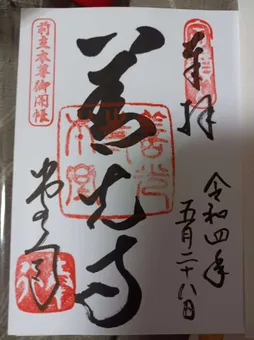 奉拝
令和四年
五月二十八日
善光寺
前立本尊御開帳